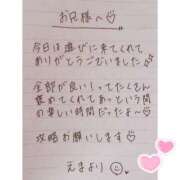 お兄様へ♡
今日は遊びに来てくれて
ありがとうございました
全部が良い！ってたくさん
褒めてくれてあっという間
の楽しい時間だったよ〜♡
攻略お願いします♡
えまより